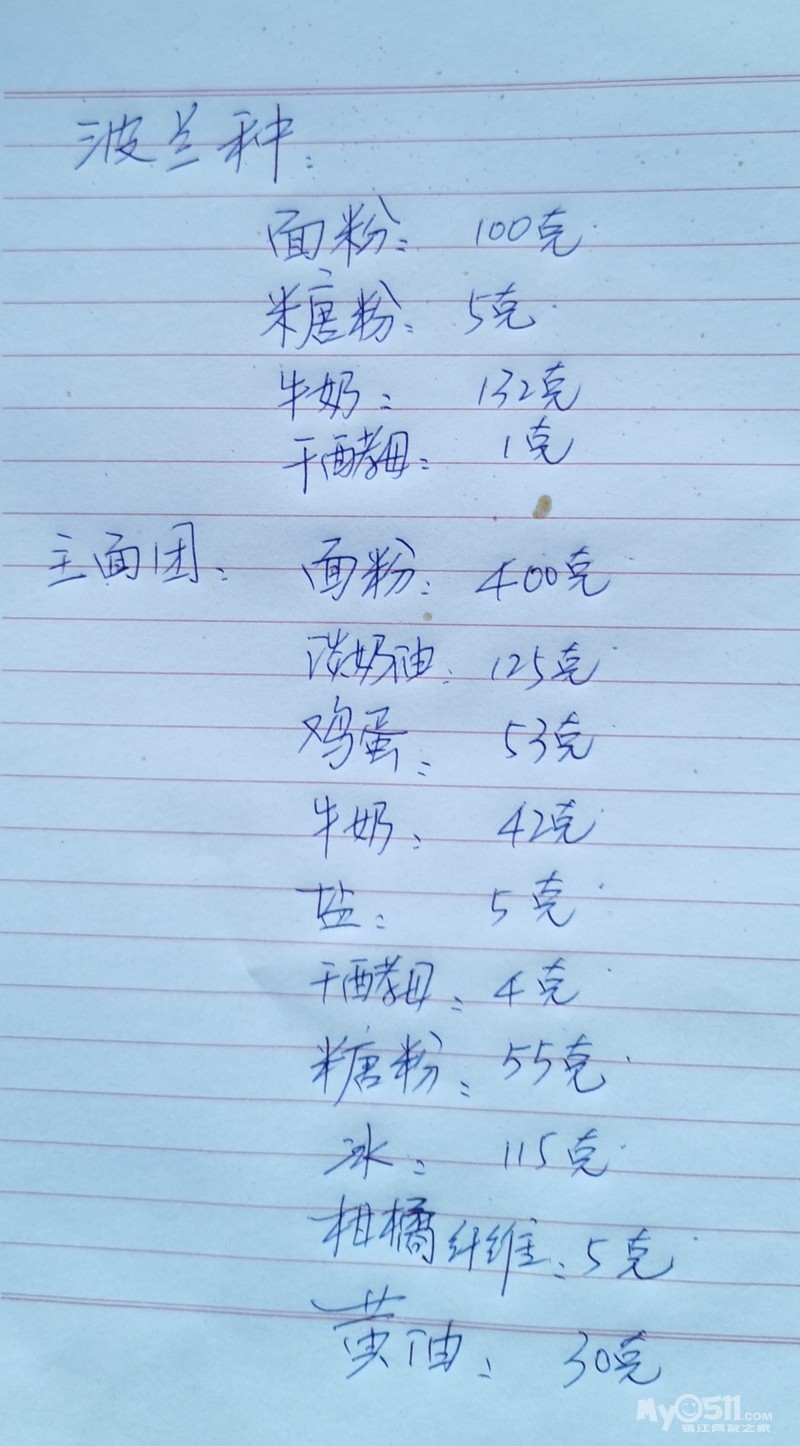 波兰种：
面粉：100克
糖粉：5克
牛奶：132克
干酵母：1克
主面团：面粉：400克
淡奶油：125克
鸡蛋：53克
牛奶：42克
盐：5克
干酵母：4克
糖粉：55克
冰：115克
柑橘纤维：5克
黄油：30克
My0511.COM
镇江网友之家